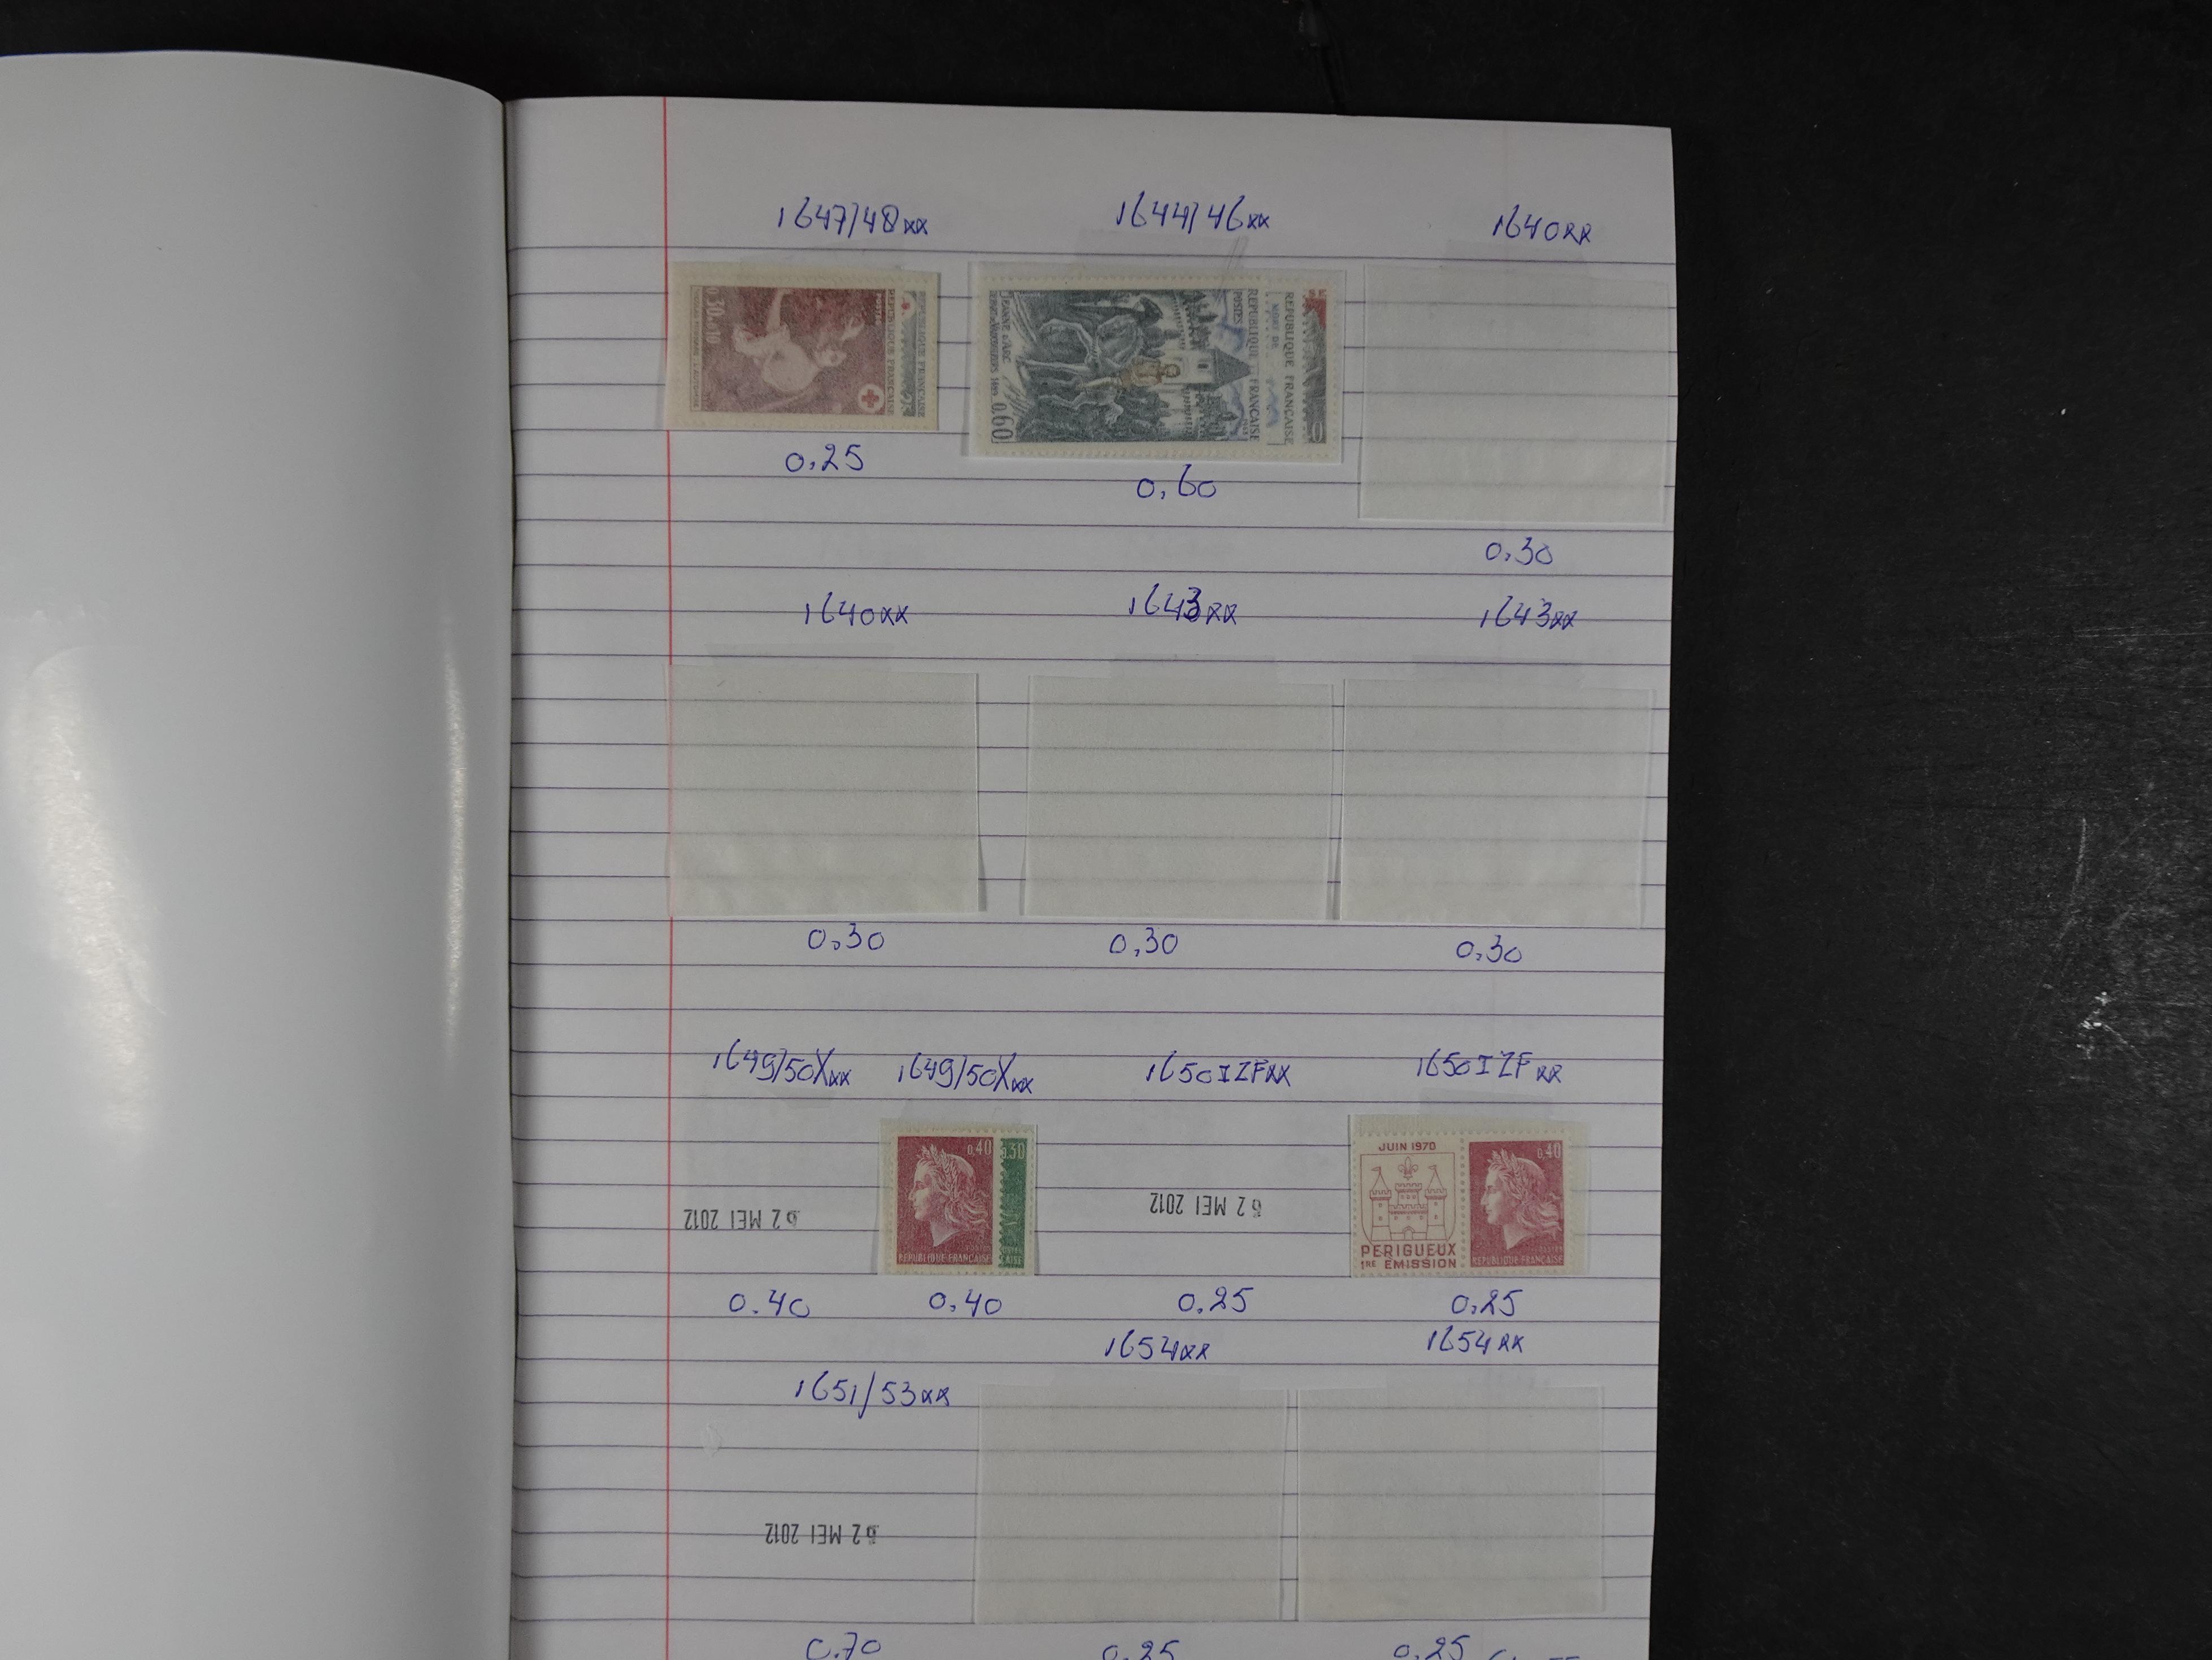 1647/48xx 1644/46xx 1640xx
0,30+0,10
POSTES
REPUBLIQUE FRANCAISE
REPUBLIQUE FRANCAISE
JEANNE D'ARC
0,60
POSTES
REPUBLIQUE FRANCAISE
REPUBLIQUE FRANCAISE
0,25 0,60 0.30
1640xx 1643xx 1643xx
0,30 0,30 0.30
1649/50Xxx 1649/50Xxx 1650IZFxx 1650IZFxx
0,40 0.30
REPUBLIQUE FRANCAISE
JUIN 1970
PERIGUEUX
1RE ÉMISSION
0,40
REPUBLIQUE FRANCAISE
2 MEI 2012 2 MEI 2012
0.40 0,40 0,25 0,25
1654xx 1654xx
1651/53xx
2 MEI 2012
0.70 0,25 0,25